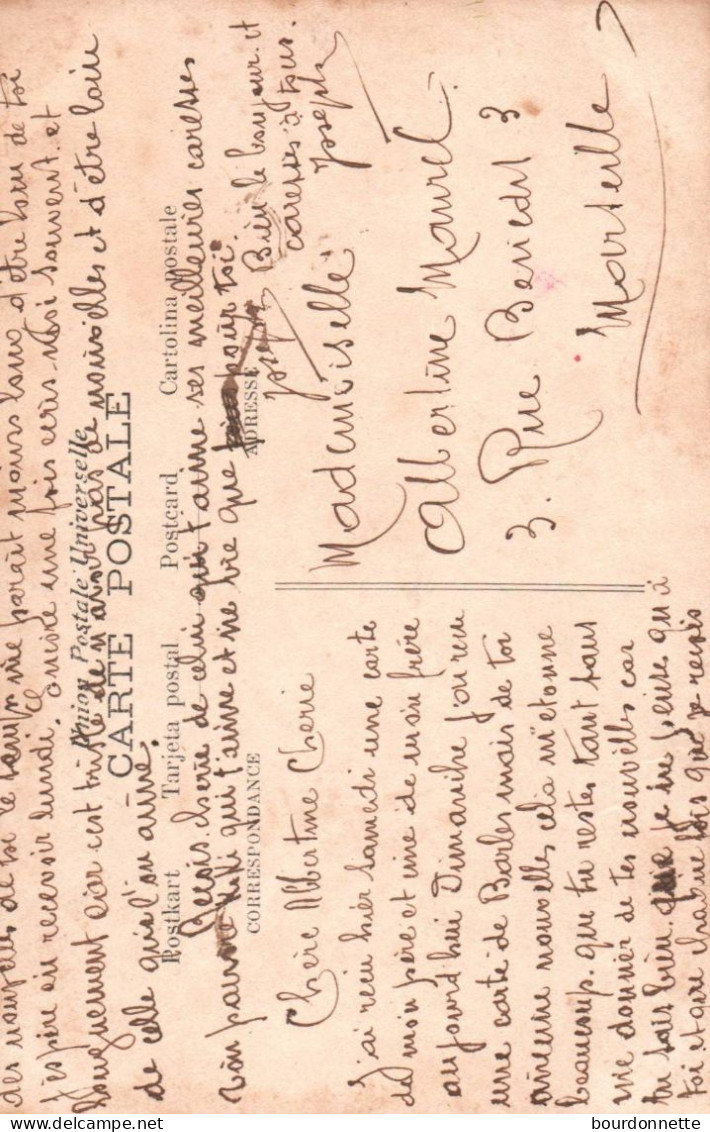 Union Postale Universelle
CARTE POSTALE
Postkart Tarjeta postal Postcard Cartolina postale
CORRESPONDANCE
ADRESSE
Chère Albertine Chérie
j'ai recu hier samedi une carte
de mon père et une de mon frère
aujourd'hui Dimanche j'ai recu
une carte de Barles mais de toi
aucune nouvelles cela m'etonne
beaucoup. que tu restes tant sans
me donner de tes nouvelles car
tu sais bien que je ne pense qu'à
toi et que chaque fois que je recois
des nouvelles de toi le temps me parait moins long d'être loin de toi
j'espère en recevoir lundi. encore une fois ecris moi souvent. et
longuement car c'est triste de n'avoir pas de nouvelles et d'être loin
de celle que l'on aime.
Recois cherie de celui qui t'aime ses meilleures caresses
Ton pauvre qui t'aime et ne vie que pour toi
Joseph
Bien le bonjour et
caresses à tous.
Joseph
Mademoiselle
Albertine Maurel
3. Rue Benedit 3
Marseille
bourdonnette